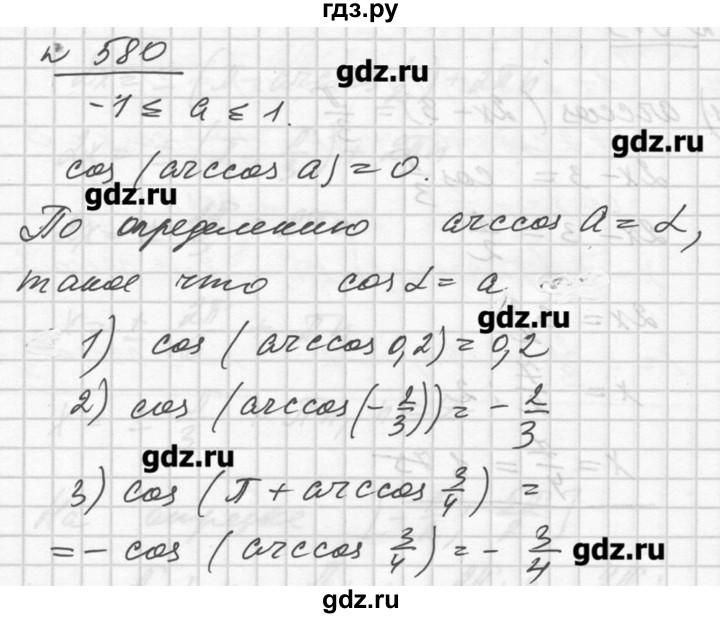 гдз.ру
№ 580
gdz.ru
-1 ≤ a ≤ 1.
gdz.ru
cos (arccos a) = 0.
gdz.ru
По определению arccos a = α,
такое что cos α = a
gdz.ru
1) cos (arccos 0,2) = 0,2
2) cos (arccos (-2/3)) = -2/3
gdz.ru
3) cos (π + arccos 3/4) =
= - cos (arccos 3/4) = - 3/4
gdz.ru
gdz.ru